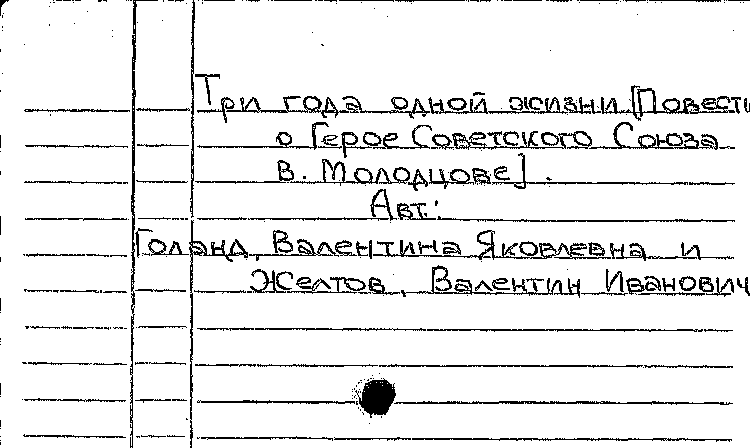 Три года одной жизни [Повесть
о Герое Советского Союза
В. Молодцове].
Авт.:
Голанд, Валентина Яковлевна и
Желтов, Валентин Иванович